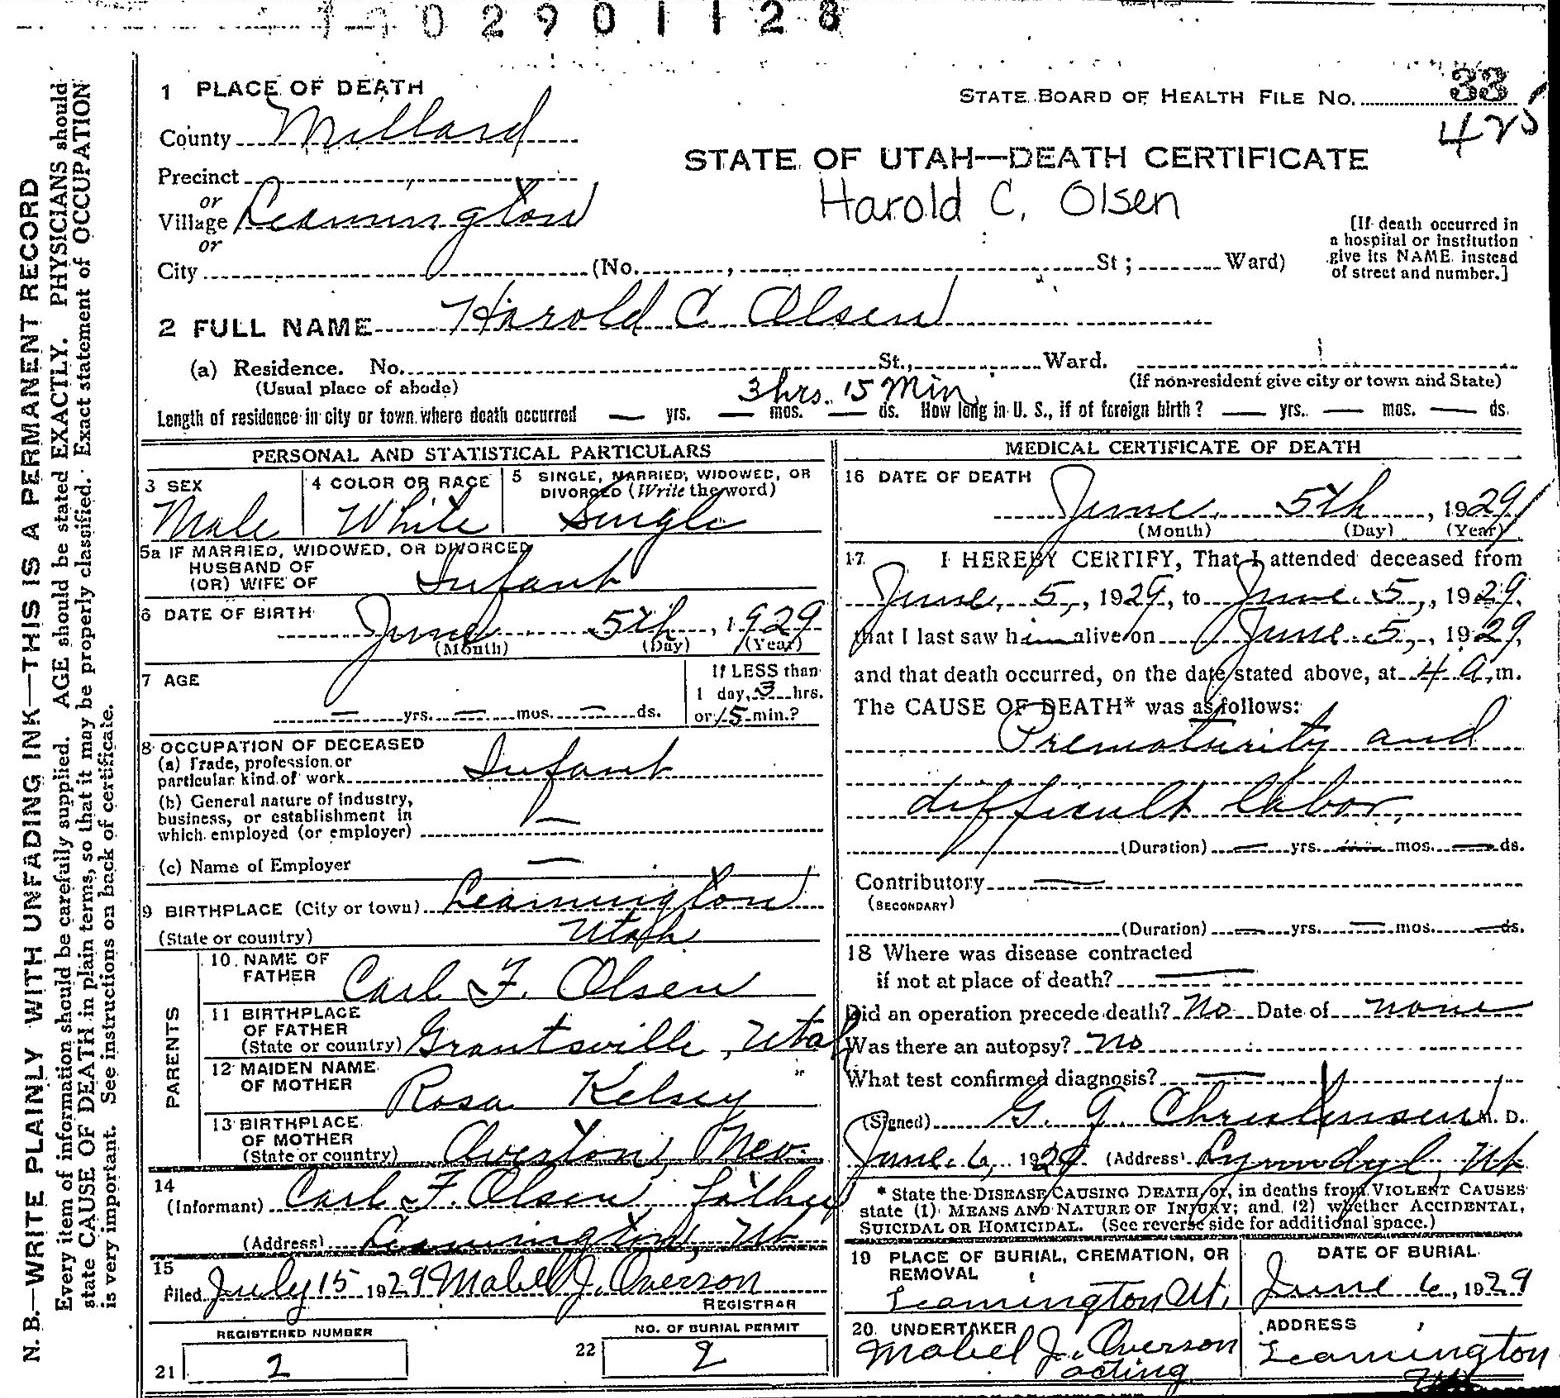 2901128
1 PLACE OF DEATH
STATE BOARD OF HEALTH FILE NO. 33
County Millard
425
STATE OF UTAH—DEATH CERTIFICATE
Precinct
or
Harold C. Olsen
Village Leamington
or
[If death occurred in
a hospital or institution
give its NAME instead
of street and number.]
City (No. , St ; Ward)
2 FULL NAME Harold C Olsen
(a) Residence. No. St., Ward.
(Usual place of abode) (If non-resident give city or town and State)
3 hrs. 15 Min
Length of residence in city or town where death occurred — yrs. — mos. — ds. How long in U. S., if of foreign birth? — yrs. — mos. — ds.
PERSONAL AND STATISTICAL PARTICULARS
3 SEX
Male
4 COLOR OR RACE
White
5 SINGLE, MARRIED, WIDOWED, OR
DIVORCED (Write the word)
Single
5a IF MARRIED, WIDOWED, OR DIVORCED
HUSBAND OF
(OR) WIFE OF Infant
6 DATE OF BIRTH
June 5th, 1929
(Month) (Day) (Year)
7 AGE
— yrs. — mos. — ds.
If LESS than
1 day, 3 hrs.
or 15 min.?
8 OCCUPATION OF DECEASED
(a) Trade, profession or
particular kind of work Infant
(b) General nature of industry,
business, or establishment in
which employed (or employer) —
(c) Name of Employer —
9 BIRTHPLACE (City or town) Leamington
(State or country) Utah
PARENTS
10 NAME OF
FATHER Carl F. Olsen
11 BIRTHPLACE
OF FATHER
(State or country) Grantsville, Utah
12 MAIDEN NAME
OF MOTHER Rosa Kelsey
13 BIRTHPLACE
OF MOTHER
(State or country) Overton, Nev.
14
(Informant) Carl F. Olsen, father
(Address) Leamington, Ut
15
Filed July 15 1929 Mabel J. Overson
REGISTRAR
REGISTERED NUMBER
21 2
NO. OF BURIAL PERMIT
22 2
MEDICAL CERTIFICATE OF DEATH
16 DATE OF DEATH
June 5th, 1929
(Month) (Day) (Year)
17 I HEREBY CERTIFY, That I attended deceased from
June 5, 1929, to June 5, 1929.
that I last saw him alive on June 5, 1929,
and that death occurred, on the date stated above, at 4 a.m.
The CAUSE OF DEATH* was as follows:
Prematurity and
difficult labor,
(Duration) — yrs. — mos. — ds.
Contributory —
(SECONDARY)
(Duration) — yrs. — mos. — ds.
18 Where was disease contracted
if not at place of death? —
Did an operation precede death? No Date of none
Was there an autopsy? No
What test confirmed diagnosis? —
(Signed) G. G. Christensen M. D.
June 6, 1929 (Address) Lynndyl, Ut
* State the DISEASE CAUSING DEATH, or, in deaths from VIOLENT CAUSES
state (1) MEANS AND NATURE OF INJURY; and (2) whether ACCIDENTAL,
SUICIDAL OR HOMICIDAL. (See reverse side for additional space.)
19 PLACE OF BURIAL, CREMATION, OR
REMOVAL
Leamington Ut.
DATE OF BURIAL
June 6, 1929
20 UNDERTAKER
Mabel J. Overson
acting
ADDRESS
Leamington
N. B.—WRITE PLAINLY WITH UNFADING INK—THIS IS A PERMANENT RECORD
Every item of information should be carefully supplied. AGE should be stated EXACTLY. PHYSICIANS should
state CAUSE OF DEATH in plain terms, so that it may be properly classified. Exact statement of OCCUPATION
is very important. See instructions on back of certificate.